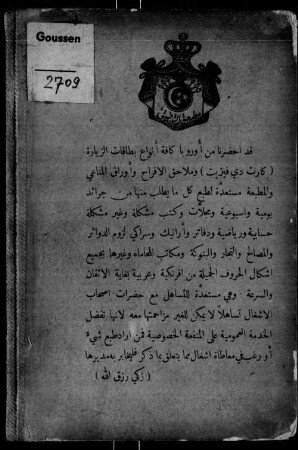 Goussen
2709
قد احضرنا من أوروبا كافة أنواع بطاقات الزيارة
(كارت دي فيزيت) وملاحق الافراح وأوراق المناعي
والمطبعة مستعدة لطبع كل ما يطلب منها من جرائد
يومية واسبوعية ومجلات وكتب مشكلة وغير مشكلة
حسابية ورياضية ودفاتر وأرانيك وسراكي لزوم الدوائر
والمصالح والتجار والبنوكة ومكاتب المحاماه وغيرها بجميع
اشكال الحروف الجميلة من افرنكية وعربية بغاية الاتقان
والسرعة وهي مستعدة للتساهل مع حضرات اصحاب
الاشغال تساهلاً لا يمكن للغير مزاحمتها معه لانها تفضل
الخدمة العمومية على المنفعة الخصوصية فمن اراد طبع شيء
أو رغب في معاطاة اشغال مما يتعلق بما ذكر فليخابر به مديرها
(زكي رزق الله)